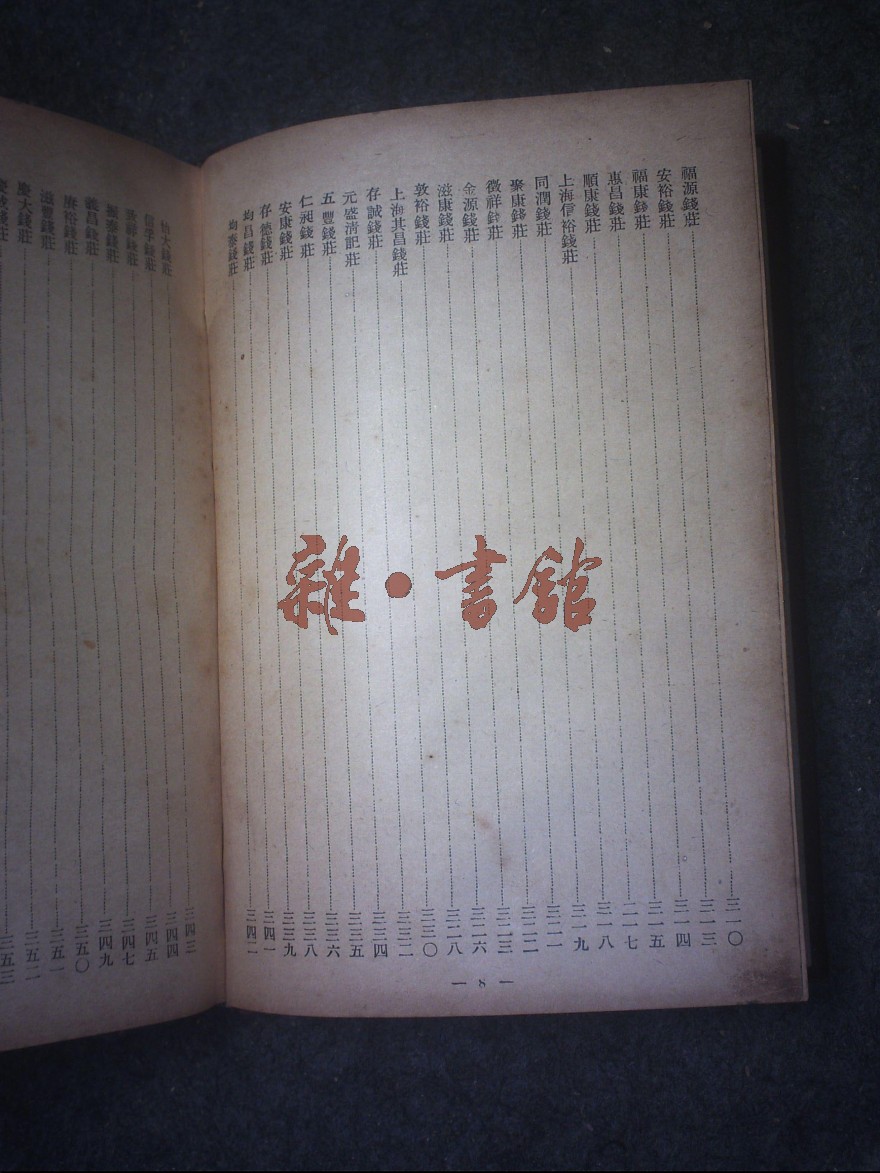 福源錢莊 三一〇
安裕錢莊 三一三
福康錢莊 三一四
惠昌錢莊 三一五
順康錢莊 三一七
上海信裕錢莊 三一八
同潤錢莊 三一九
聚康錢莊 三二一
徵祥錢莊 三二二
金源錢莊 三二三
滋康錢莊 三二六
敦裕錢莊 三二八
上海其昌錢莊 三三〇
存誠錢莊 三三二
元盛清記莊 三三四
五豐錢莊 三三五
仁昶錢莊 三三六
安康錢莊 三三八
存德錢莊 三三九
均昌錢莊 三四一
均泰錢莊 三四二
— 8 —
怡大錢莊 三四三
信孚錢莊 三四四
致祥錢莊 三四五
振泰錢莊 三四七
義昌錢莊 三四九
賡裕錢莊 三五〇
滋豐錢莊 三五一
慶大錢莊 三五二
錢莊 三五三
雜•書館